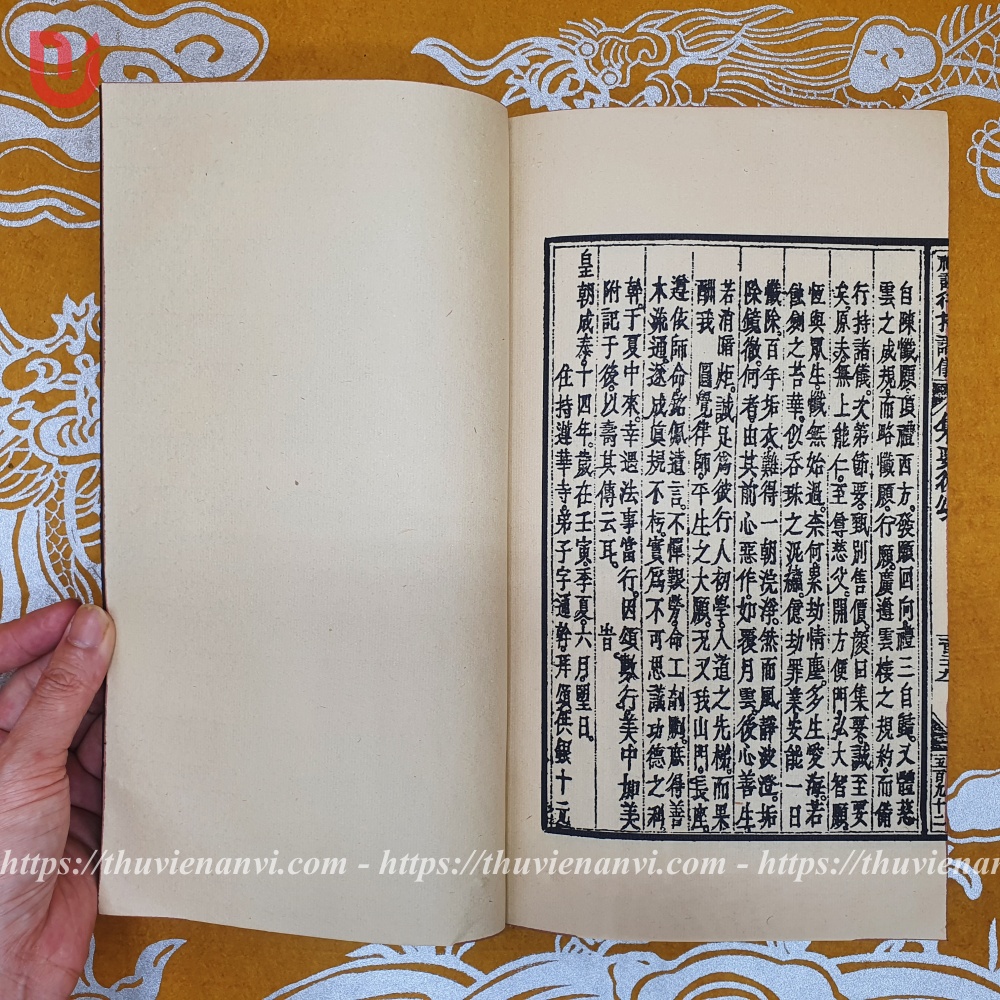 自陳懺願。頂禮西方。發願回向。禮三自歸。又體慈
雲之成規。而略懺願。行願。廣遵雲棲之規約。而備
行持諸儀。次第節要。甄別售價。顏曰集要。誠至要
矣。原夫無上能仁。至尊慈父。開方便門。弘大智願
恆與眾生。懺無始過。柰何。累劫情塵。多生愛海。若
蝕劍之苔華。似吞珠之泥穢。億劫罪業。安能一日
懺除。百年垢衣。難得一朝浣淨。然而風靜波澄。垢
除鏡徹。何者。由其前心惡作。如覆月雲。後心善生
若消暗炬。誠足爲彼行人初學。入道之先梯。而果
酬我 圓覺律師。平生之大願。况又我山門。長座。
遵依師命。銘佩遺言。不憚艱勞。命工剞劂。庶得善
本流通。遂成眞規不朽。實爲不可思議功德之利。
幹。于夏中來。幸遇法事當行。因頌數行。美中加美
附記于後。以壽其傳云耳。 旹
皇朝成泰。十四年。歲在壬寅。季夏。六月。朢日。
住持蓮華寺。弟子字通幹。拜頌。供銀十元
行持諸儀 集要後
五百九十二
https://thuvienanvi.com - https://thuvienanvi.com - https://thuvienanvi